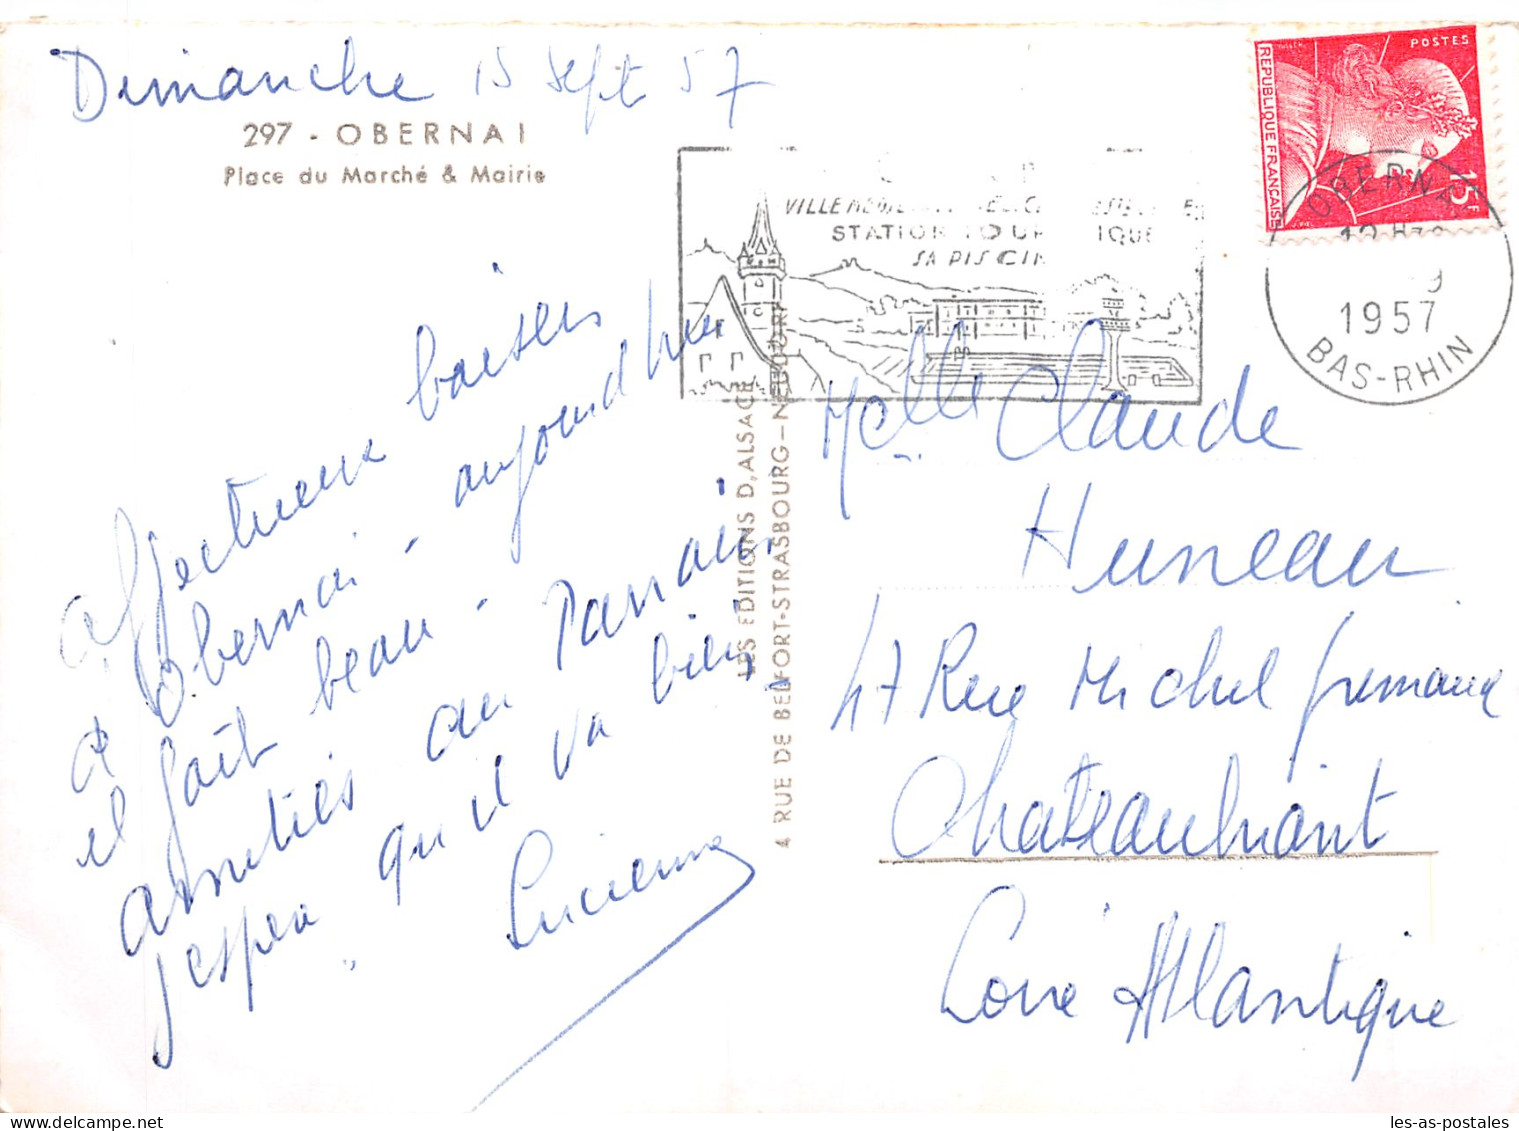 Dimanche 15 Sept 57
297 - OBERNAI
Place du Marché & Mairie
Affectueux baisers
d'Obernai - aujourd'hui
il fait beau -
Amitiés au Parrain
j'espère qu'il va bien
Lucienne
LES EDITIONS D'ALSACE
4 RUE DE BELFORT-STRASBOURG-NEUDORF
STATION TOURISTIQUE
SA PISCINE
POSTES
REPUBLIQUE FRANÇAISE
15F
OBERNAI
1957
BAS-RHIN
Melle Claude
Huneau
47 Rue Michel Grimault
Chateaubriant
Loire Atlantique
les-as-postales